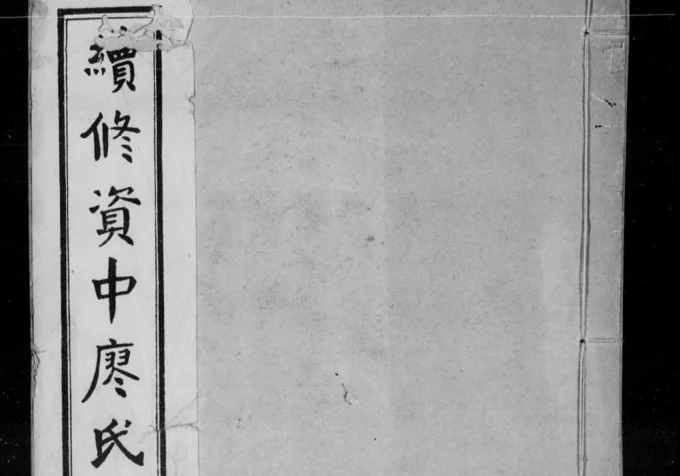 續修資中廖氏